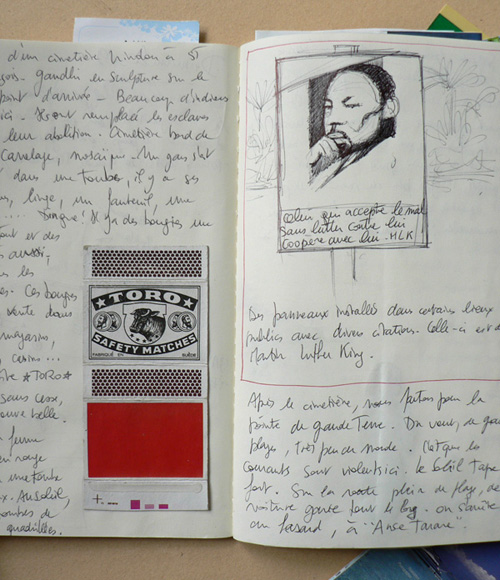 d'un cimetière hindou à St
Gandhi en sculpture sur le
point d'arrivée - Beaucoup d'indiens
ici. Ils ont remplacé les esclaves
leur abolition. Cimetière bord de
Carrelage, mosaïque. Un gars s'est
dans une tombe, il y a ses
linge, un fauteuil, une
.... Dingue! Il y a des bougies une
out et des
aussi,
les
Ces bougies
vente dans
magasins,
casino...
★TORO★
sans cesse,
trouve belle.
femme
en rouge
une tombe
Au soleil,
ombres de
quadrillées.
★TORO★
SAFETY MATCHES
FABRIQUÉ EN SUÈDE
Celui qui accepte le mal
sans lutter contre lui
coopère avec lui. MLK
Des panneaux installés dans certains lieux
publics avec divers citations. Celle-ci est de
Martin Luther King.
Après le cimetière, nous partons pour la
pointe de grande Terre. Du vent, de grandes
plages, très peu de monde. C'est que les
courants sont violents ici. le soleil tape
fort. Sur la route plein de plages, des
voiture garée tout le long. on s'arrête
au hasard, à "Anse Tarare".